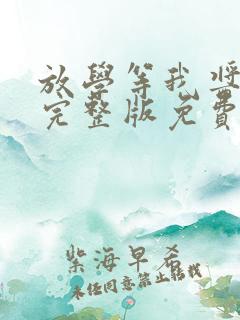 放學等我獎
完整版免費
紫海早希
未经同意禁止轉載